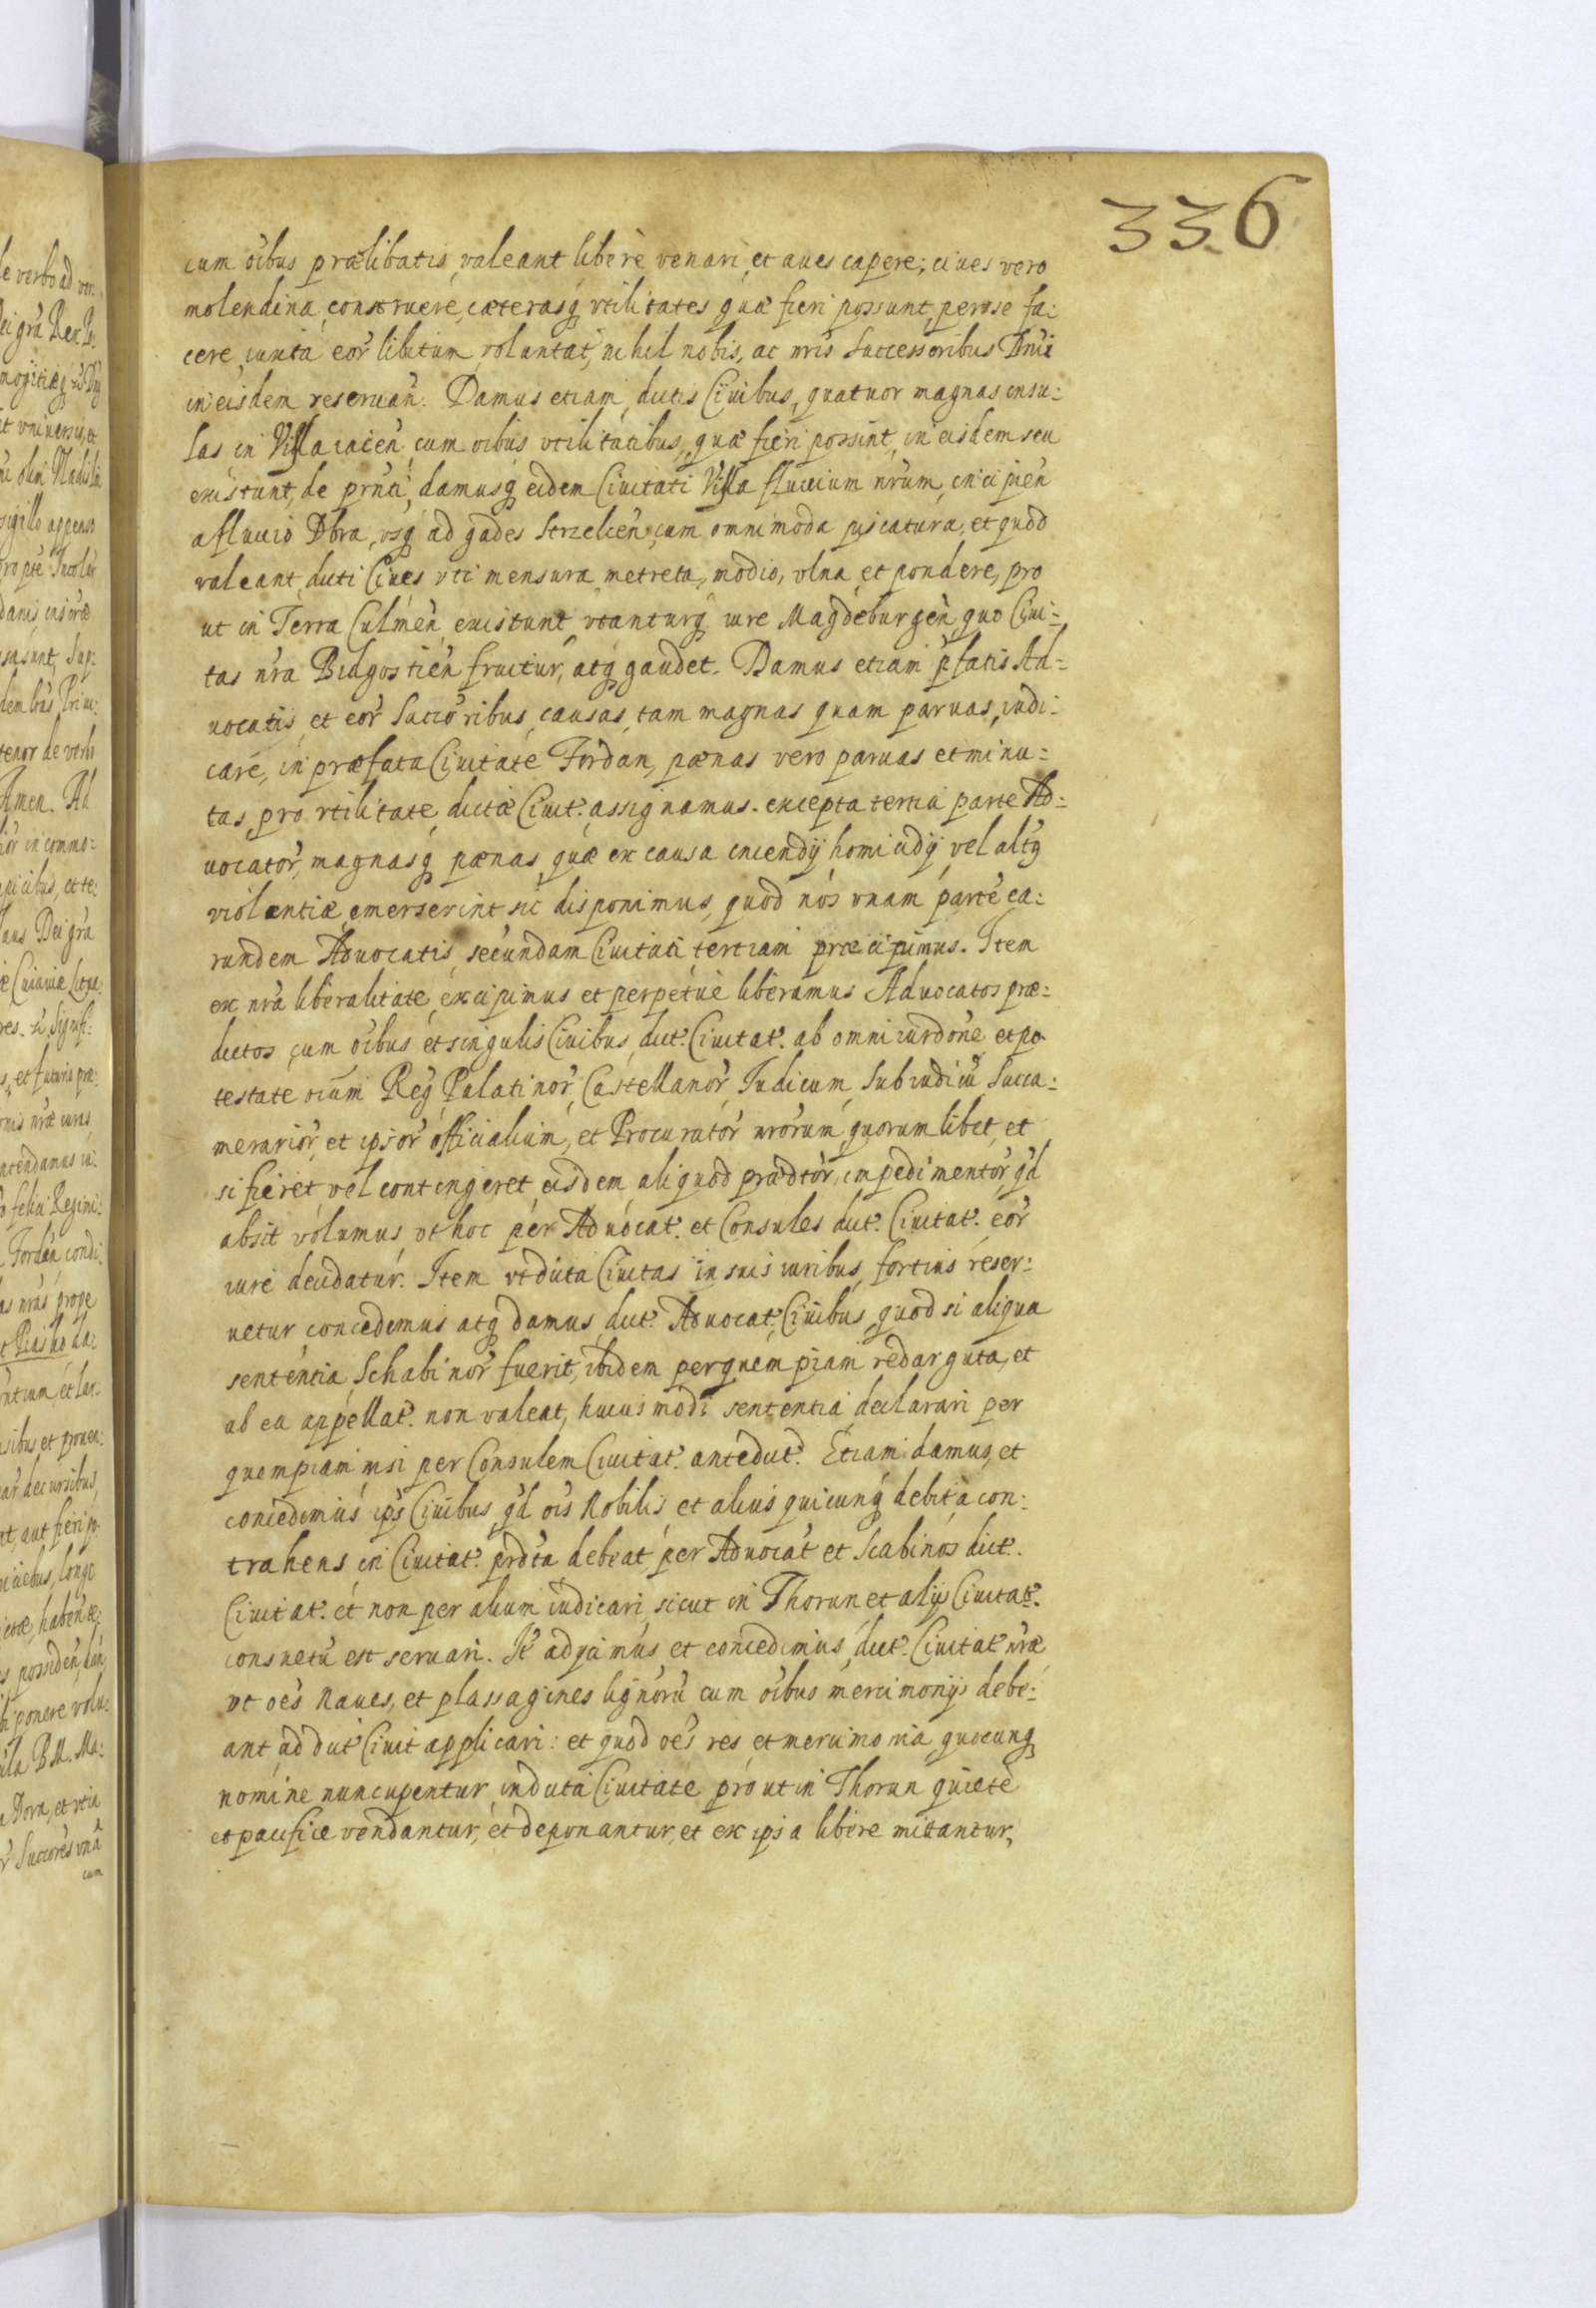 336
cum oibus prælibatis, valeant liberè venari, et aues capere; ciues vero
molendina, construere, cæterasq vtilitates, quæ fieri possunt, per se fa:
cere, iuxta eor libitum, voluntat, nihil nobis, ac nris Successoribus
in eisdem reseruan̄. Damus etiam, dictis Ciuibus, quatuor magnas insu:
las in Visla iacen̄ cum oibus vtilitatibus, quæ fieri possint, in eisdem seu
existunt, de prnti, damusq eidem Ciuitati Visla fluuium nrum, incipien̄
a fluuio Dbra, vsq ad gades Strzelcen̄, cum omnimoda piscatura, et quod
valeant, dicti Ciues vti mensura metreta, modio, vlna, et pondere, pro
ut in Terra Culmen̄, existunt, vtanturq iure Magdeburgen̄, quo Ciui:
tas nra Bidgostien̄ fruitur, atq gaudet. Damus etiam pfatis Ad=
uocatis, et eor Succoribus, causas, tam magnas quam paruas, iudi:
care, in præfata Ciuitate Fordan, pænas vero paruas et minu=
tas, pro vtilitate, dictæ Ciuit. assignamus. excepta tertia parte Ad=
uocator, magnasq pænas, quæ ex causa incendij homicidij vel altq
violentiæ emerserint sic disponimus, quod nos vnam parte ea:
rundem Aduocatis, secundam Ciuitati tertiam præcipimus. Item
ex nra liberalitate, excipimus et perpetuè liberamus Aduocatos præ=
dictos, cum oibus et singulis Ciuibus, dict. Ciuitat. ab omni iurdone et po
testate oium Reg Palatinor, Castellanor, Iudicum, Subiudicu Succa:
merarior, et ipsor officialium, et Procurator nrorum, quorumlibet, et
si fieret vel contingeret, eisdem aliquod prædtor, impedimentor, qd
absit volumus, vt hoc per Aduocat. et Consules dict. Ciuitat. eor
iure decidatur. Item vt dicta Ciuitas in suis iuribus, fortius reser:
uetur concedimus atq damus, dict. Aduocat. Ciuibus, quod si aliqua
sententia, Schabinor fuerit, ibidem per quempiam redarguta, et
ab ea appellat. non valeat, huiusmodi sententia, declarari per
quempiam nisi per Consulem Ciuitat. antedict. Etiam damus, et
concedimus ips Ciuibus, qd ois Nobilis, et alius quicunq debita con:
trahens in Ciuitat. prdta debeat, per Aduocat et Scabinos dict.
Ciuitat. et non per alium iudicari, sicut in Thorun et alijs Ciuitat.
consuetu est seruari. It adijcimus et concedimus, dict. Ciuitat nræ
vt oes Naues, et plassagines lignoru cum oibus mercimonijs debe:
ant ad dict Ciuit applicari: et quod oes res et mercimonia, quocunq
nomine nuncupentur, in dicta Ciuitate prout in Thorun quiete
et pacifice vendantur, et deponantur, et ex ipsa libere mittantur,